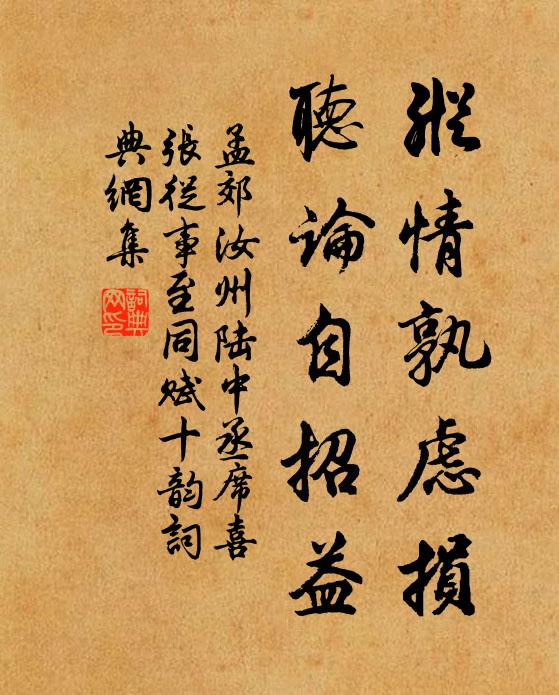 縱情孰慮損
聽論自招益
孟郊汝州陸中丞席喜
張從事至同賦十韵詞
典網集
詞典
网印